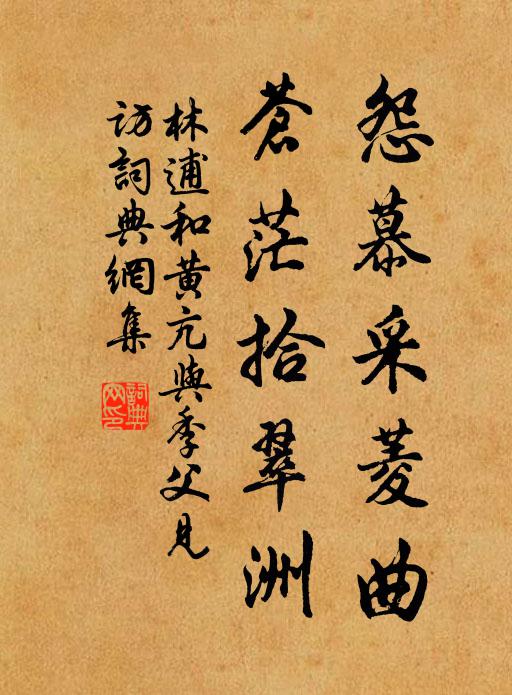 怨慕采菱曲
蒼茫拾翠洲
林逋和黄亢與季父見
訪詞典網集
詞典
网印